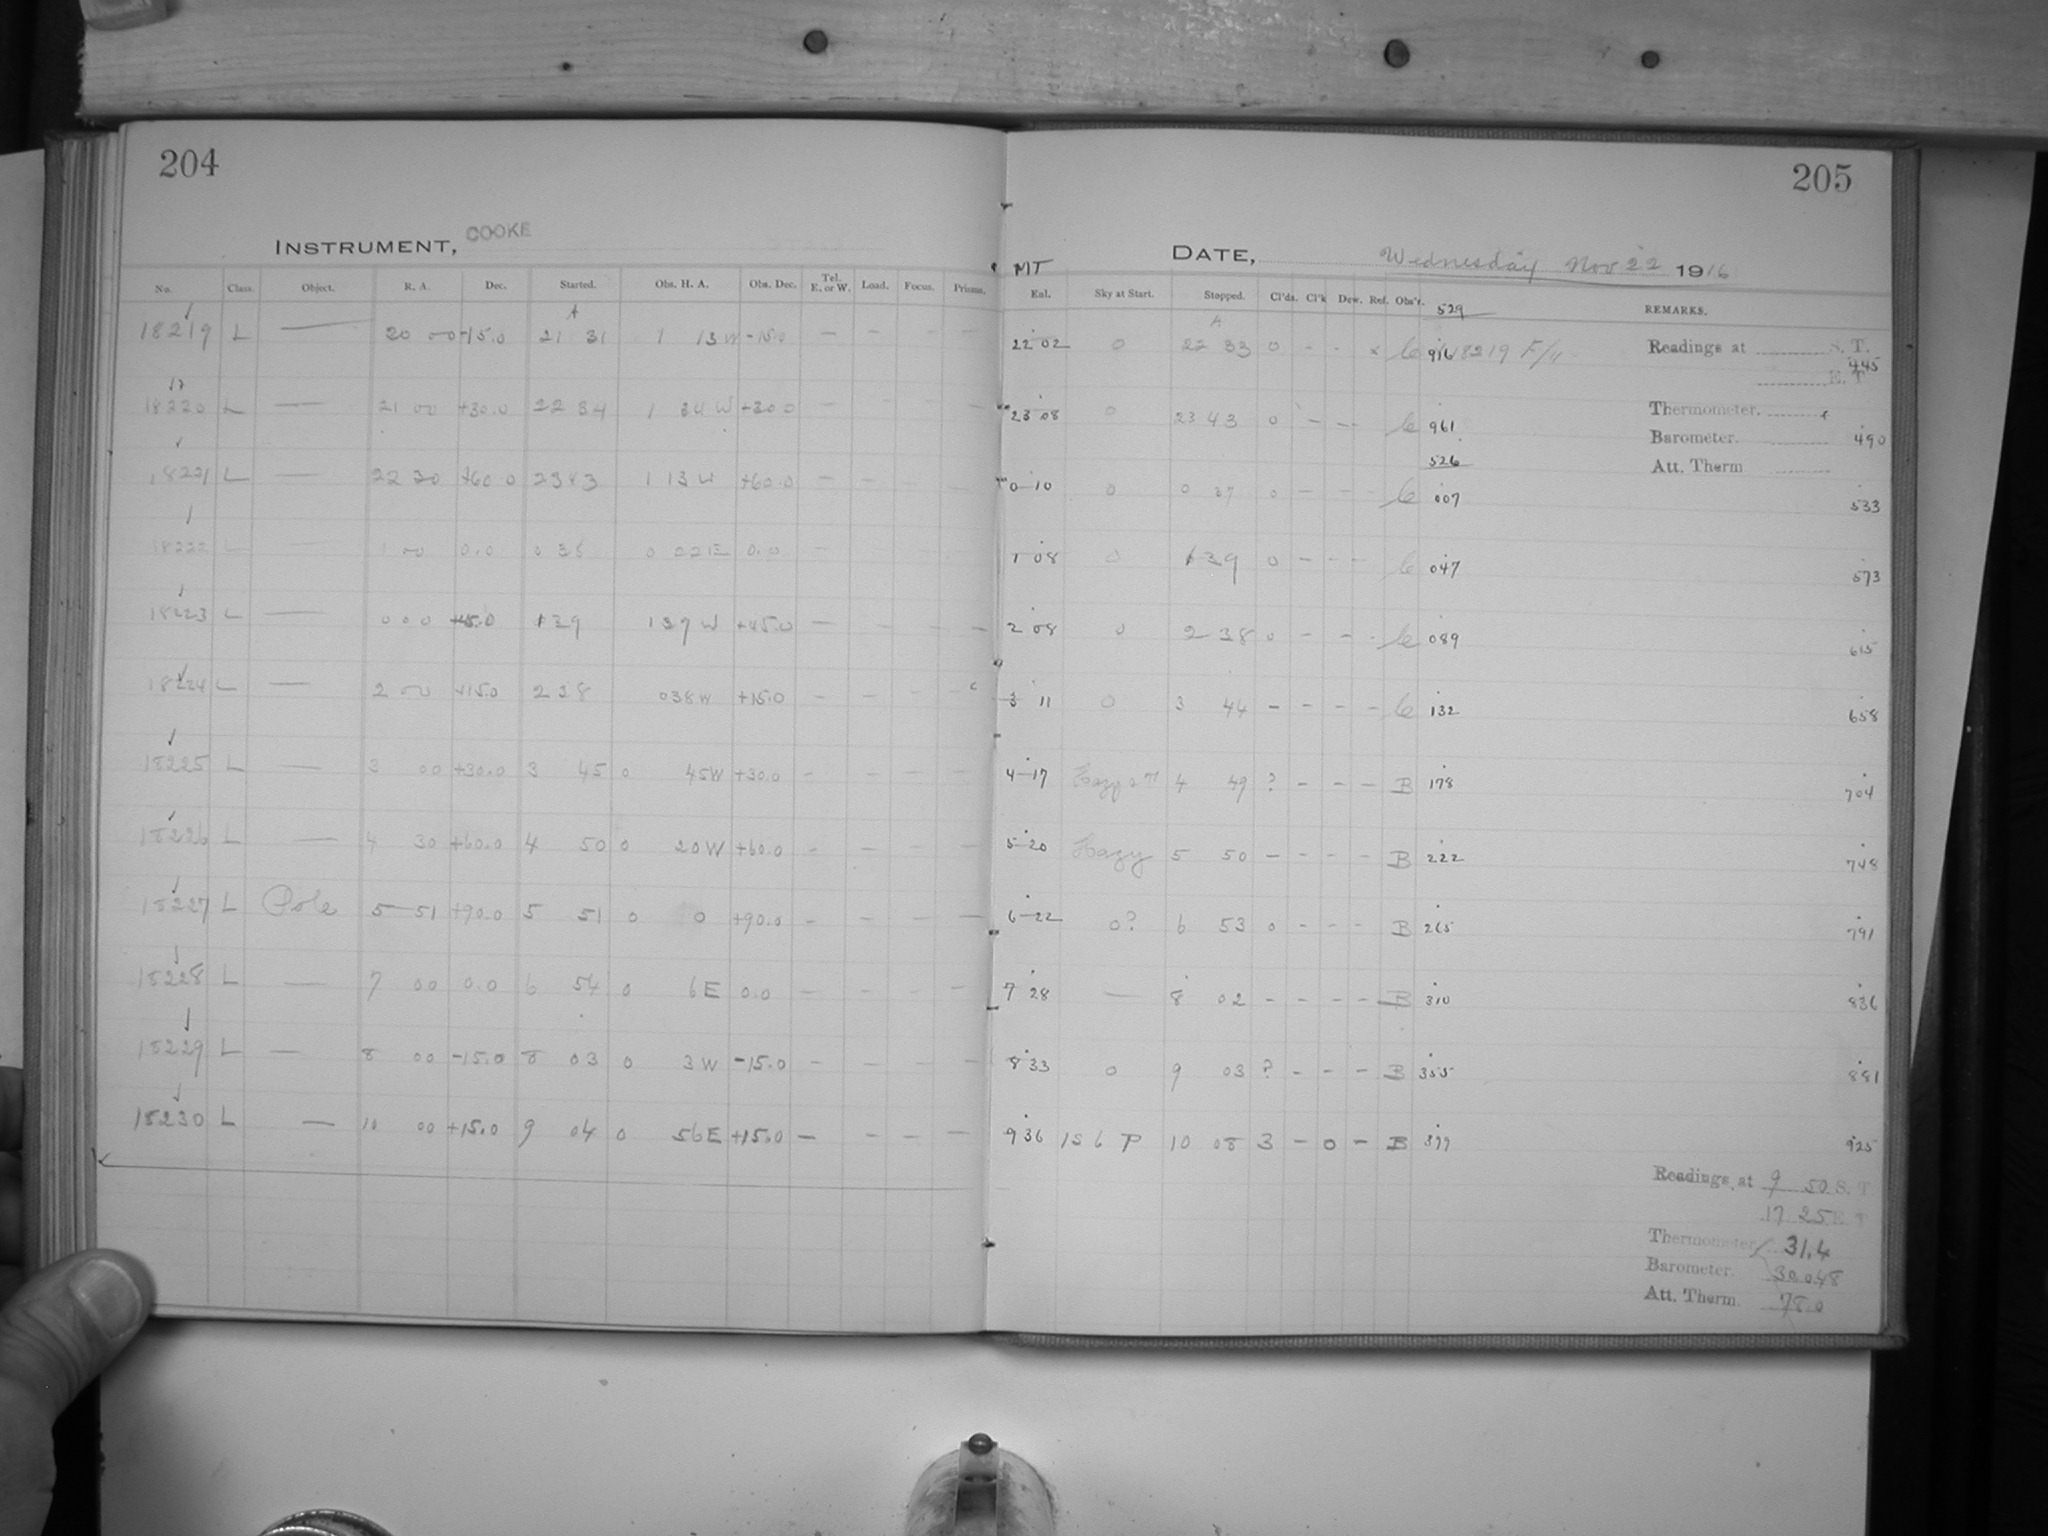 204
INSTRUMENT, COOKE
No. Class. Object. R. A. Dec. Started. Obs. H. A. Obs. Dec. Tel. E. or W. Load. Focus. Prisms.
18219 L — 20 00 -15.0 21 31 1 13 W -15.0 — — — —
18220 L — 21 00 +30.0 22 34 1 34 W +30.0 — — — —
18221 L — 22 30 +60.0 23 43 1 13 W +60.0 — —
18222 L — 1 00 0.0 0 38 0 22 E 0.0 —
18223 L — 0 00 +45.0 1 39 1 39 W +45.0 — — — — —
18224 L — 2 00 +15.0 2 38 0 38 W +15.0 — — — —
18225 L — 3 00 +30.0 3 45 0 45 W +30.0 — — — — —
18226 L — 4 30 +60.0 4 50 0 20 W +60.0 — — — —
18227 L Pole 5 51 +90.0 5 51 0 0 +90.0 — — — —
18228 L — 7 00 0.0 6 54 0 6 E 0.0 — — — — —
18229 L — 8 00 -15.0 8 03 0 3 W -15.0 — — — —
18230 L — 10 00 +15.0 9 04 0 56 E +15.0 — — — —
205
DATE, Wednesday Nov 22 1916
MT
Enl. Sky at Start. Stopped. Cl'ds. Cl'k Dew. Ref. Obs'r. 529 REMARKS.
22 02 0 22 33 0 - - x 916 18219 F/11 Readings at S. T.
445
E. T
Thermometer.
23 08 0 23 43 0 - - 961 Barometer. 490
526 Att. Therm
0 10 0 0 37 0 - - 007 533
1 08 0 1 39 0 - - - 047 573
2 08 0 2 38 0 - - - 089 615
3 11 0 3 44 - - - - 132 658
4 17 4 49 ? - - - B 178 704
5 20 Hazy 5 50 - - - - B 222 748
6 22 0? 6 53 0 - - - B 265 791
7 28 — 8 02 - - - - B 310 836
8 33 0 9 03 ? - - - B 355 881
9 36 1S 6 P 10 08 3 - 0 - B 399 925
Readings at 9 50 S. T
17 25 E. T
Thermometer 31.4
Barometer. 30.048
Att. Therm. 78.0